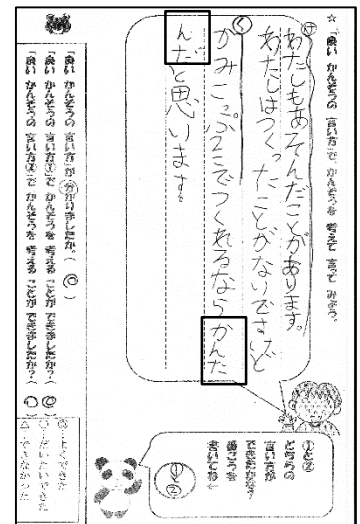 ☆「良い かんそうの 言い方」で、かんそうを 考えて 言って みよう。
わたしもあそんだことがあります。
わたしはつくったことがないですけど
かみコップ2こでつくれるならかんた
んだと思います。
①と②
どちらの
言い方が
できたかな?
番ごうを
書いてね↓
①
②
「良い かんそうの 言い方」が 分かりましたか。( ◎ )
「良い かんそうの 言い方①」で かんそうを 考える ことが できましたか?( ◎
「良い かんそうの 言い方②」で かんそうを 考える ことが できましたか?( ○
◎…よくできた
○…だいたいできた
△…できなかった